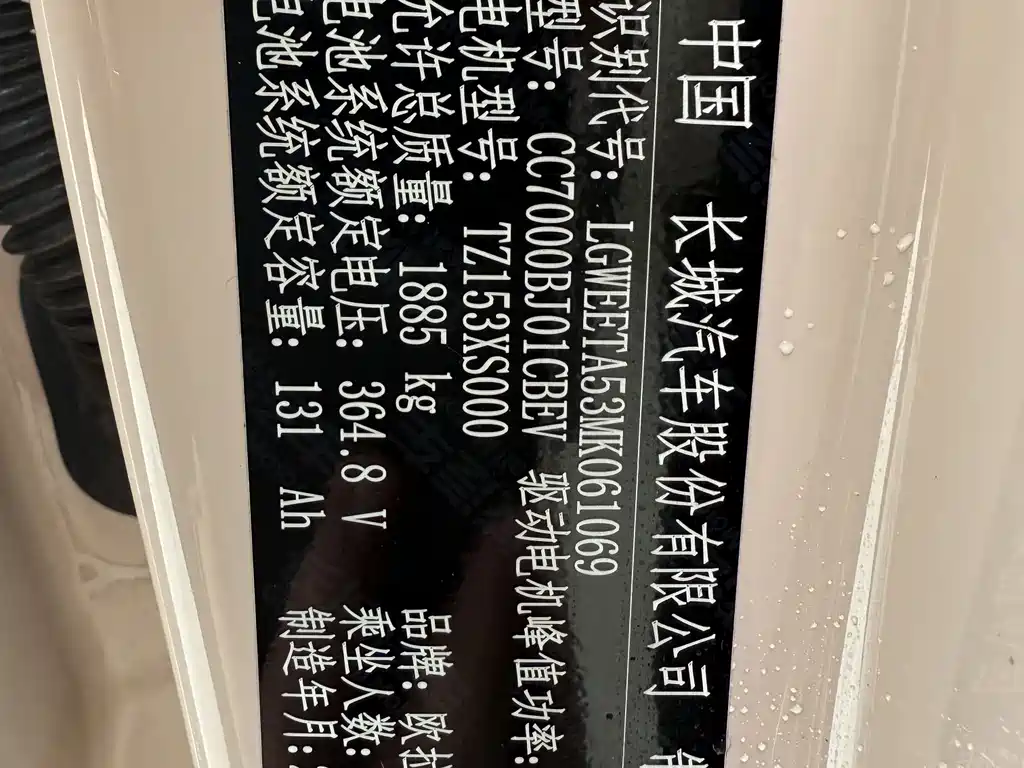 中国 长城汽车股份有限公司
识别代号: LGWEETA53MK061069
型号: CC7000BJ01CBEV 驱动电机峰值功率:
电机型号: TZ153XS000
允许总质量: 1885 kg 品牌: 欧拉
电池系统额定电压: 364.8 V 乘坐人数:
电池系统额定容量: 131 Ah 制造年月: